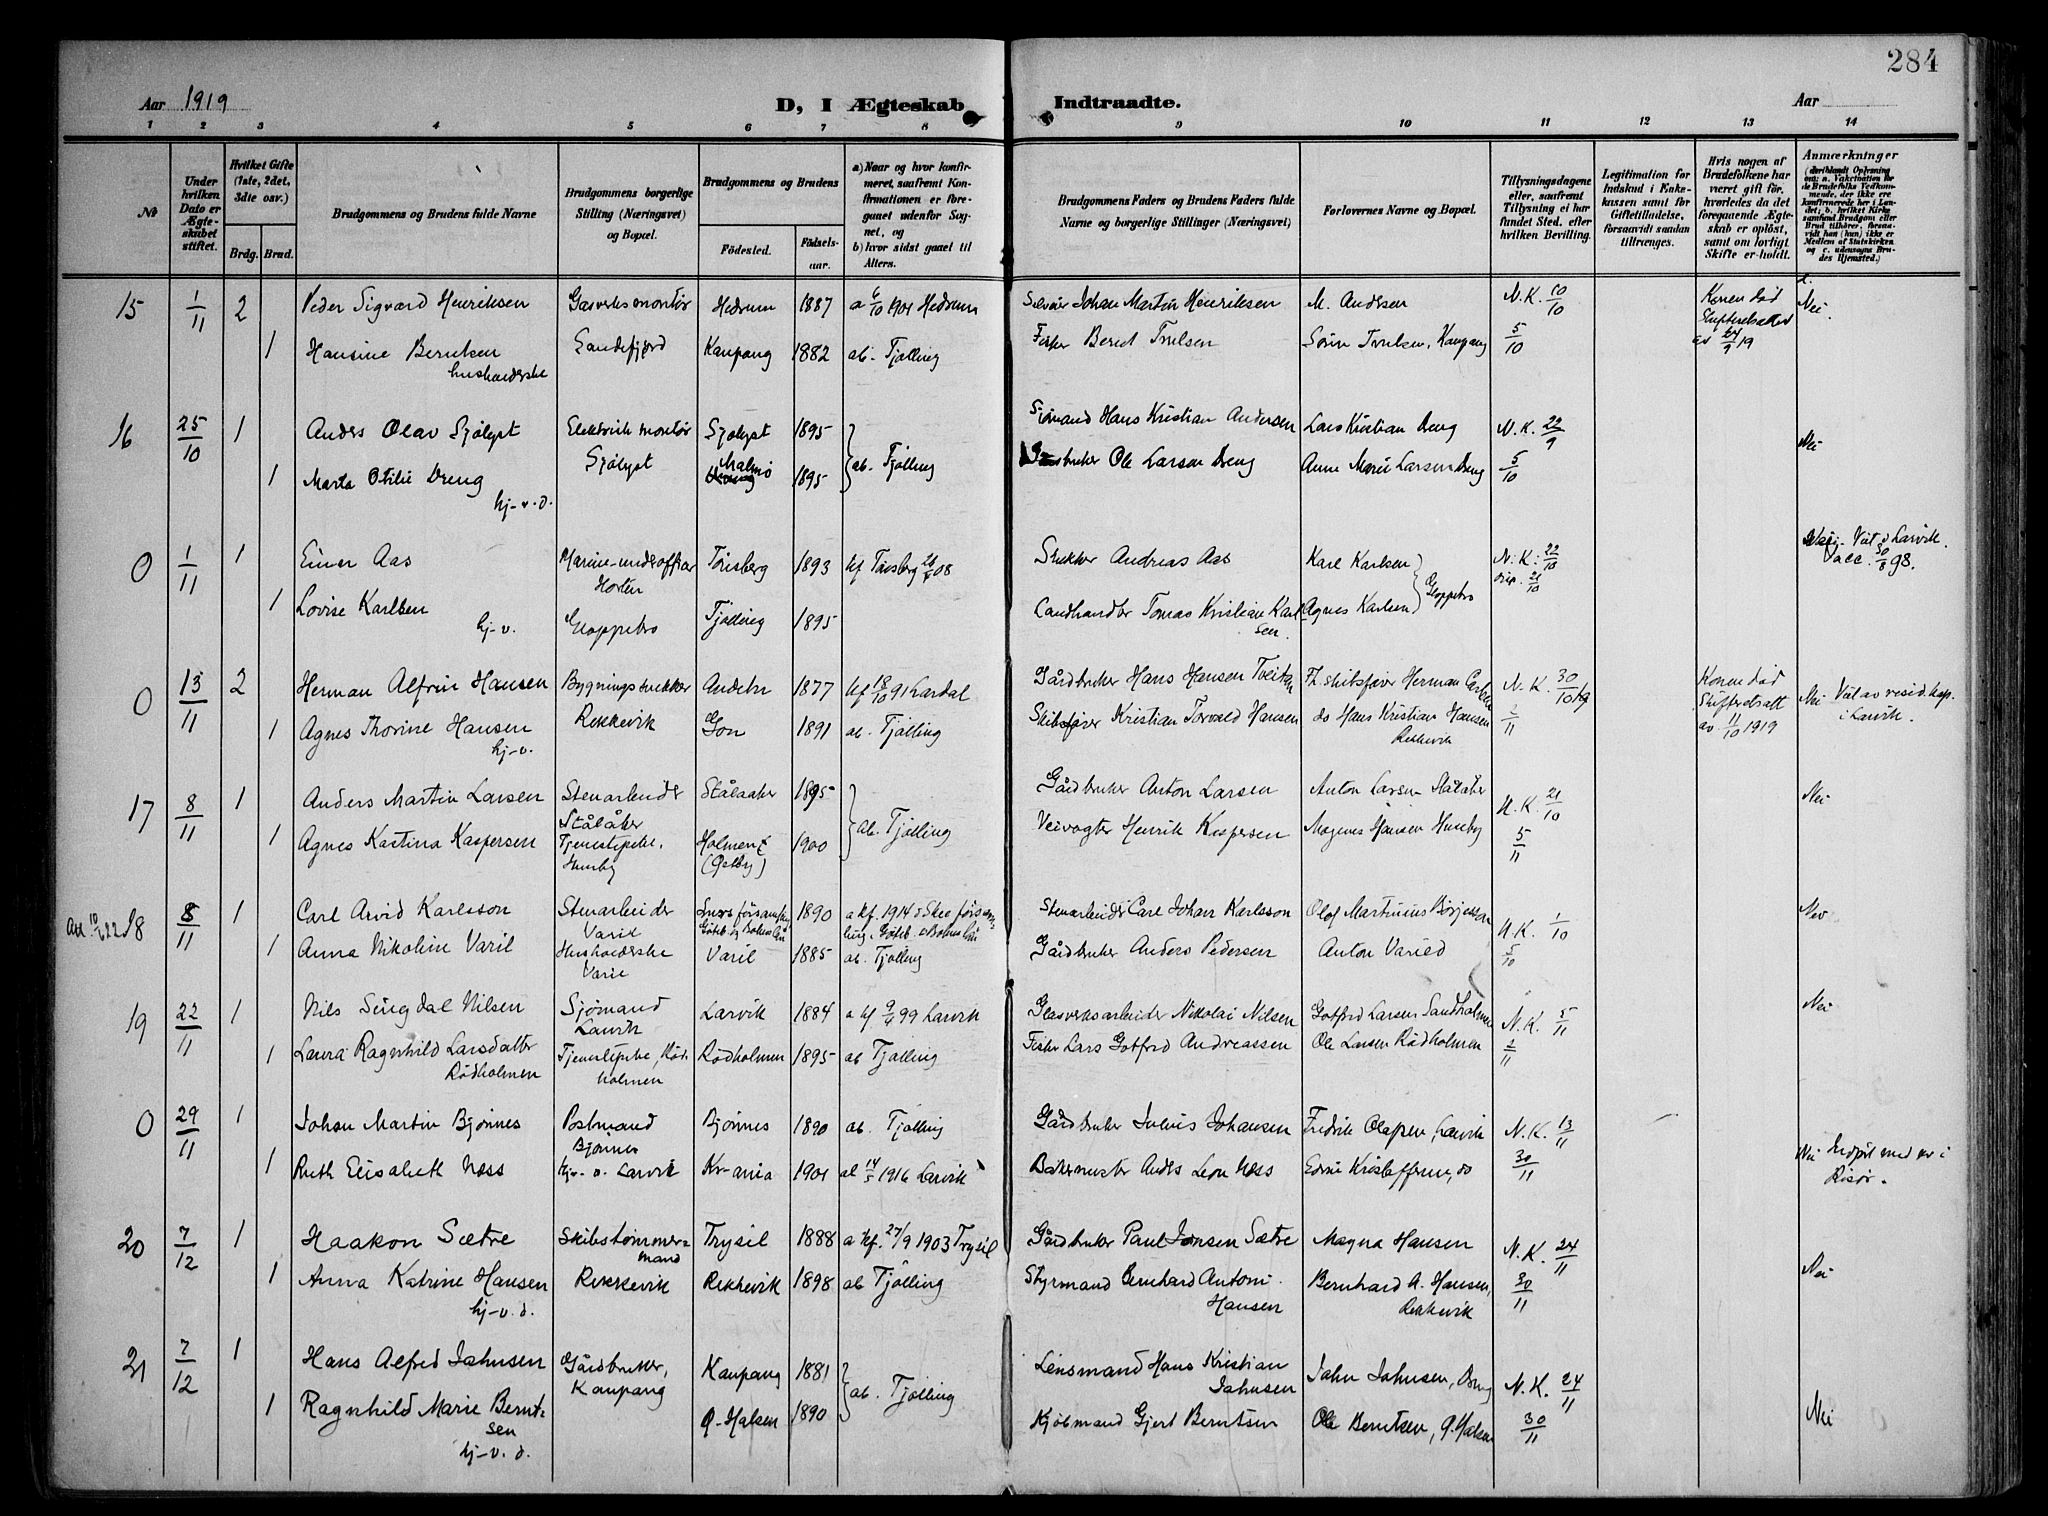 284
Aar 1919
D, I Ægteskab Indtraadte.
Aar
1 2 3 4 5 6 7 8 9 10 11 12 13 14
No
Under hvilken Dato er Ægteskabet stiftet.
Hvilket Gifte (1ste, 2det, 3dte osv.)
Brdg. Brud.
Brudgommens og Brudens fulde Navne
Brudgommens borgerlige Stilling (Næringsvei) og Bopæl.
Brudgommens og Brudens
Fødested. Fødselsaar.
a) Naar og hvor konfirmeret, saafremt Konfirmationen er foregaaet udenfor Sognet, og
b) hvor sidst gaaet til Alters.
Brudgommens Faders og Brudens Faders fulde Navne og borgerlige Stillinger (Næringsvei)
Forlovernes Navne og Bopæl.
Tillysningsdagene eller, saafremt Tillysning ei har fundet Sted, efter hvilken Bevilling.
Legitimation for Indskud i Enkekassen samt for Giftetilladelse, forsaavidt saadan tiltrænges.
Hvis nogen af Brudefolkene har været gift før, hvorledes da det foregaaende Ægteskab er opløst, samt om lovligt Skifte er holdt.
Anmærkninger
15 1/11 2 Peder Sigvard Henriksen Gasverksmontør Hedrum 1887 a 6/10 1901 Hedrum Johan Martin Henriksen M. Andersen N.K. 10/10 Konen død Nei
1 Hansine Berntsen Sandefjord Kaupang 1882 ab. Tjølling Fisker Berent Trulsen Sørine Trulsen, Kaupang 5/10 Skifteretsattest av 24/9 19
husholderske
16 25/10 1 Anders Olav Sjølyst Elektrisk montør Sjølyst 1895 Sjømand Hans Kristian Andersen Lars Kristian Dreng N.K. 22/9 Nei
1 Marta Otilie Dreng Sjølyst Malmø 1895 ab. Tjølling Ole Larsen Dreng Anne Marie Larsen Dreng 5/10
hj-v.d.
0 1/11 1 Einar Aas Marine-underoffiser Horten Tønsberg 1893 kf Tønsberg 08 Andreas Aas Karl Karlsen N.K. 22/10 Nei. Viet i Larvik. Vacc. 30/8 98.
1 Lovise Karlsen Gloppebro Tjølling 1895 Landhandler Tomas Kristian Karlsen Agnes Karlsen Gloppebro 21/10
hj-v.
0 13/11 2 Herman Alfred Hansen Bygningssnekker Andebu 1877 kf 18/10 91 Lardal Gårdbruker Hans Hansen Tveiten Fh. skibsfører Herman Carlsen N.K. 30/10 19 Konen død Nei Viet av resid. kap. i Larvik.
1 Agnes Thorine Hansen Rekkevik Gon 1891 ab. Tjølling Skibsfører Kristian Torvald Hansen do Hans Kristian Hansen Rekkevik 2/11 Skifteretsatt av 11/10 1919
hj-v.
17 8/11 1 Anders Martin Larsen Stenarbeider Stålåker Stålaaker 1895 Gårdbruker Anton Larsen Anton Larsen Stålåker N.K. 21/10 Nei
1 Agnes Kastina Kaspersen Tjenestepike, Huseby Holmen (Østby) 1900 ab. Tjølling Veivogter Henrik Kaspersen Magnus Hansen Huseby 5/11
18 8/11 1 Carl Arvid Karlsson Stenarbeider Varil 1890 a kf. 1914 i Skee församling, Göteb. o Bohus län Stenarbeider Carl Johan Karlsson Olof Martinius Börjesson N.K. 1/10 Nei
1 Anna Nikoline Varil Husholderske Varil Varil 1885 ab. Tjølling Gårdbruker Anders Pedersen Anton Varild 5/10
19 22/11 1 Nils Singdal Nilsen Sjømand Larvik Larvik 1884 a kf 9/4 99 Larvik Glasverksarbeider Nikolai Nilsen Gotfred Larsen Sandholmen N.K. 5/11 Nei
1 Laura Ragnhild Larsdatter Rødholmen Tjenestepike, Rødholmen Rødholmen 1895 ab Tjølling Fisker Lars Gotfred Andreassen Ole Larsen Rødholmen 2/11
0 29/11 1 Johan Martin Bjønnes Postmand Bjønnes Bjønnes 1890 ab. Tjølling Gårdbruker Julius Johansen Fredrik Olafsen, Larvik N.K. 13/11
1 Ruth Elisabeth Næss hj-v. Larvik Kr-ania 1901 al 14/5 1916 Larvik Bakermester Anders Leon Næss Edvin Kristoffersen, do 30/11 Nei Risør.
20 7/12 1 Haakon Sætre Skibstømmermand Trysil 1888 a kf. 27/9 1903 Trysil Gårdbruker Paul Jonsen Sætre Magna Hansen N.K. 24/11 Nei
1 Anna Katrine Hansen Rekkevik Rekkevik 1898 ab Tjølling Styrmand Bernhard Antoni Hansen Bernhard A. Hansen, Rekkevik 30/11
hj-v.d.
21 7/12 1 Hans Alfred Jahnsen Gårdbruker, Kaupang Kaupang 1881 Lensmand Hans Kristian Jahnsen Jahn Jahnsen, Dreng N.K. 24/11 Nei
1 Ragnhild Marie Berntsen Ø-Halsen 1890 ab. Tjølling Kjøbmand Gjert Berntsen Ole Berntsen, Ø. Halsen 30/11
hj-v.d.